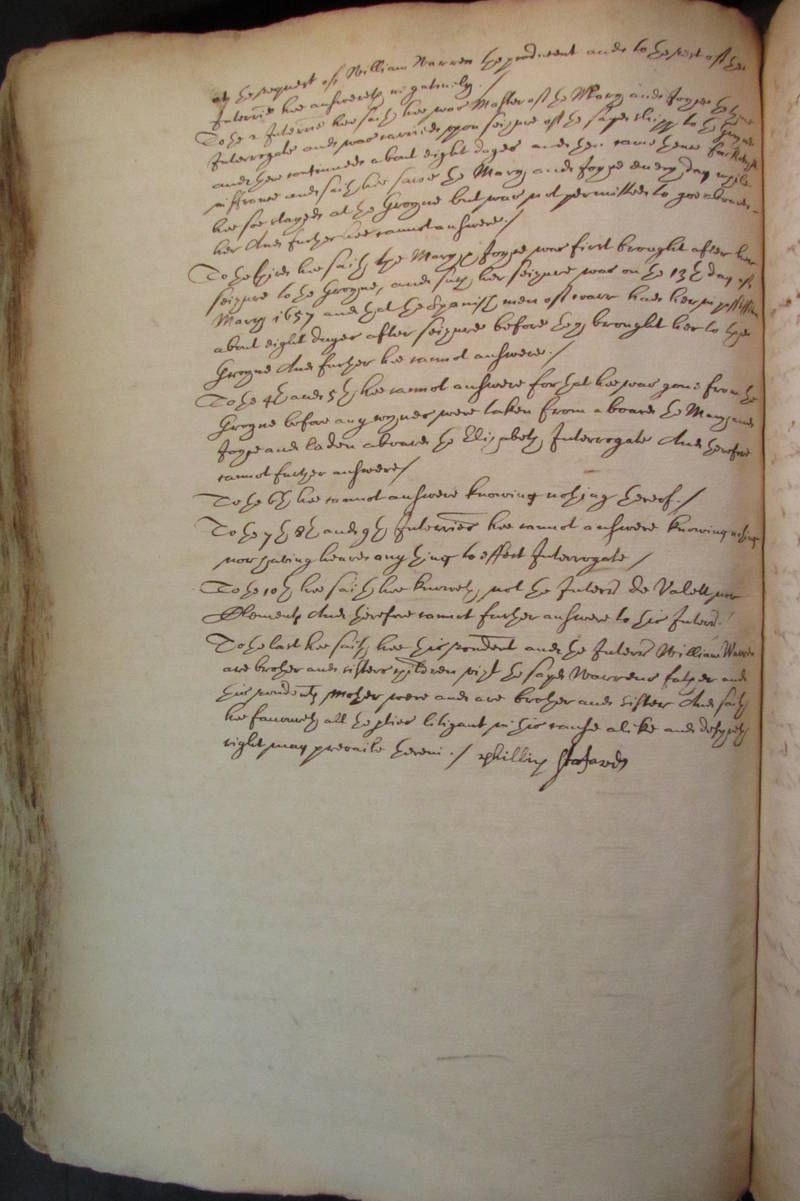 at the request of William Warren the producent and to the rest of the
Interrie hee answereth negatively./
To the 2 Interrie hee saith hee was Master of the Mary and Joyce the tyme
Interrogate and was carried uppon seizure of the sayd shipp to the Groyne
and there continued about eight dayes and then came thence for
ffrance and saith hee sawe the Mary and Joyce every day while
hee soe stayed at the Groyne but was not permitted to goe aboard
her And further hee cannot answere./
To the third hee saith the Mary and Joyce was first brought after her
seizure to the Groyne, and saith her seizure was on the 13th day of
March 1657 and that the Spanish men of warr had her in possession
about eight dayes after seizure before they brought her to the
Groyne And further hee cannot answere./
To the 4th and 5th hee cannot answere for that hee was gone from the
Groyne before any wynes were taken from aboard the Mary and
Joyce and laden aboard the Elizabeth Interrogate And therefore
cannot further answere/
To the 6th hee cannot answere knowing nothing thereof./
To the 7th 8th and 9th Interries hee cannot answere knowing nothing
nor having heard any thing to effect Interrogate/
To the 10th hee saith hee knoweth not the Interr de Valett nor
Clements And therefore cannot further answere to this Interr./
To the last hee saith hee this rondent and the Interr William Warren
are brother and sisters children vizt the sayd Warrens father and
this rendents mother were and are brother and sister And saith
hee favoureth all the pties litigant in this cause alike and desyreth
right may prevaile therein./ Phillip Stafford